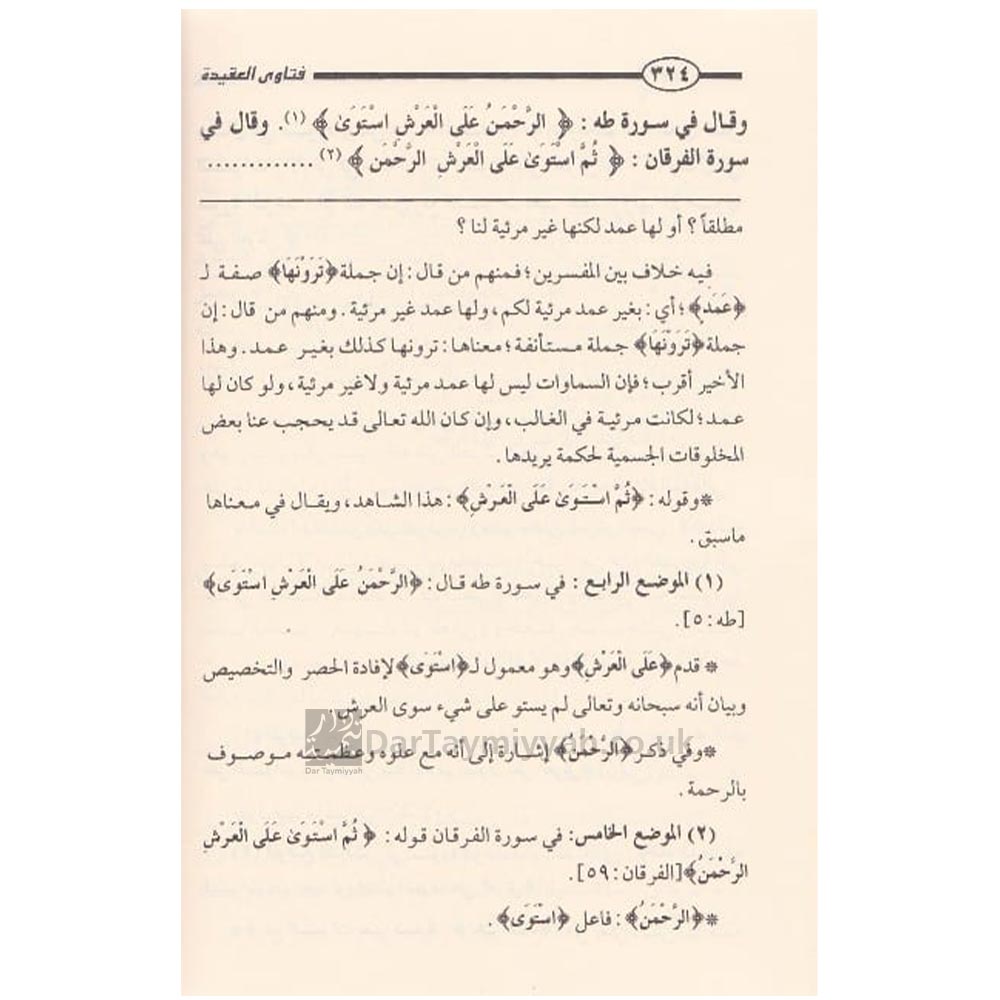 ٣٢٤ فتاوى العقيدة
وقال في سورة طه : ﴿ الرَّحْمَنُ عَلَى الْعَرْشِ اسْتَوَىٰ ﴾ (١). وقال في
سورة الفرقان : ﴿ ثُمَّ اسْتَوَىٰ عَلَى الْعَرْشِ الرَّحْمَن ﴾ (٢) .............
مطلقاً ؟ أو لها عمد لكنها غير مرئية لنا ؟
فيه خلاف بين المفسرين ؛ فمنهم من قال : إن جملة ﴿تَرَوْنَهَا﴾ صفة لـ
﴿عَمَدٍ﴾ ؛ أي : بغير عمد مرئية لكم، ولها عمد غير مرئية . ومنهم من قال : إن
جملة ﴿تَرَوْنَهَا﴾ جملة مستأنفة ؛ معناها : ترونها كذلك بغير عمد . وهذا
الأخير أقرب ؛ فإن السماوات ليس لها عمد مرئية ولاغير مرئية ، ولو كان لها
عمد ؛ لكانت مرئية في الغالب، وإن كان الله تعالى قد يحجب عنا بعض
المخلوقات الجسمية لحكمة يريدها .
*وقوله : ﴿ثُمَّ اسْتَوَىٰ عَلَى الْعَرْشِ﴾ : هذا الشاهد، ويقال في معناها
ماسبق .
(١) الموضع الرابع : في سورة طه قال : ﴿الرَّحْمَنُ عَلَى الْعَرْشِ اسْتَوَى﴾
[طه : ٥] .
* قدم ﴿عَلَى الْعَرْشِ﴾ وهو معمول لـ ﴿اسْتَوَى﴾ لإفادة الحصر والتخصيص
وبيان أنه سبحانه وتعالى لم يستو على شيء سوى العرش .
DarTaymiyyah.co.uk
Dar Taymiyyah
*وفي ذكر ﴿الرَّحْمَنُ﴾ إشارة إلى أنه مع علوه وعظمته موصوف
بالرحمة .
(٢) الموضع الخامس: في سورة الفرقان قوله : ﴿ ثُمَّ اسْتَوَىٰ عَلَى الْعَرْشِ
الرَّحْمَنُ﴾ [الفرقان : ٥٩] .
*﴿الرَّحْمَنُ﴾ : فاعل ﴿اسْتَوَى﴾ .